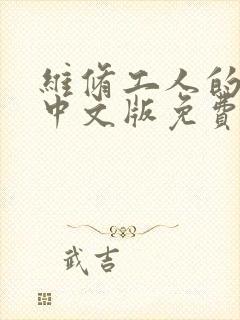 維脩工人的
中文版免費
武吉